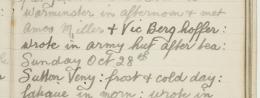 Warminster in afternoon & met
Amos Miller & Vic Berghoffer:
wrote in army hut after tea:
Sunday Oct 28th
Sutton Veny: frost & cold day:
fatigue in morn: wrote in